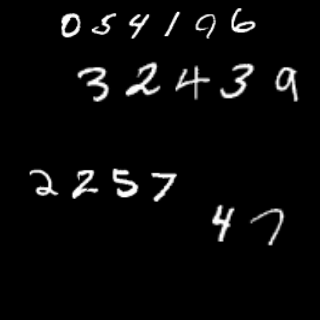 054196
32439
2257
47